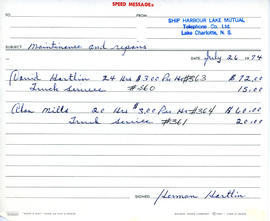 SPEED MESSAGE
TO
FROM
SHIP HARBOUR LAKE MUTUAL
Telephone Co. Ltd.
Lake Charlotte, N. S.
SUBJECT Maintainance and repairs
DATE July 26 1974
David Hartlin 24 Hrs $3.00 Per Hr #363 $72.00
Truck service #360 15.00
Alan Mills 20 Hrs $3.00 Per Hr #364 $60.00
Truck service #361 20.00
SIGNED Herman Hartlin